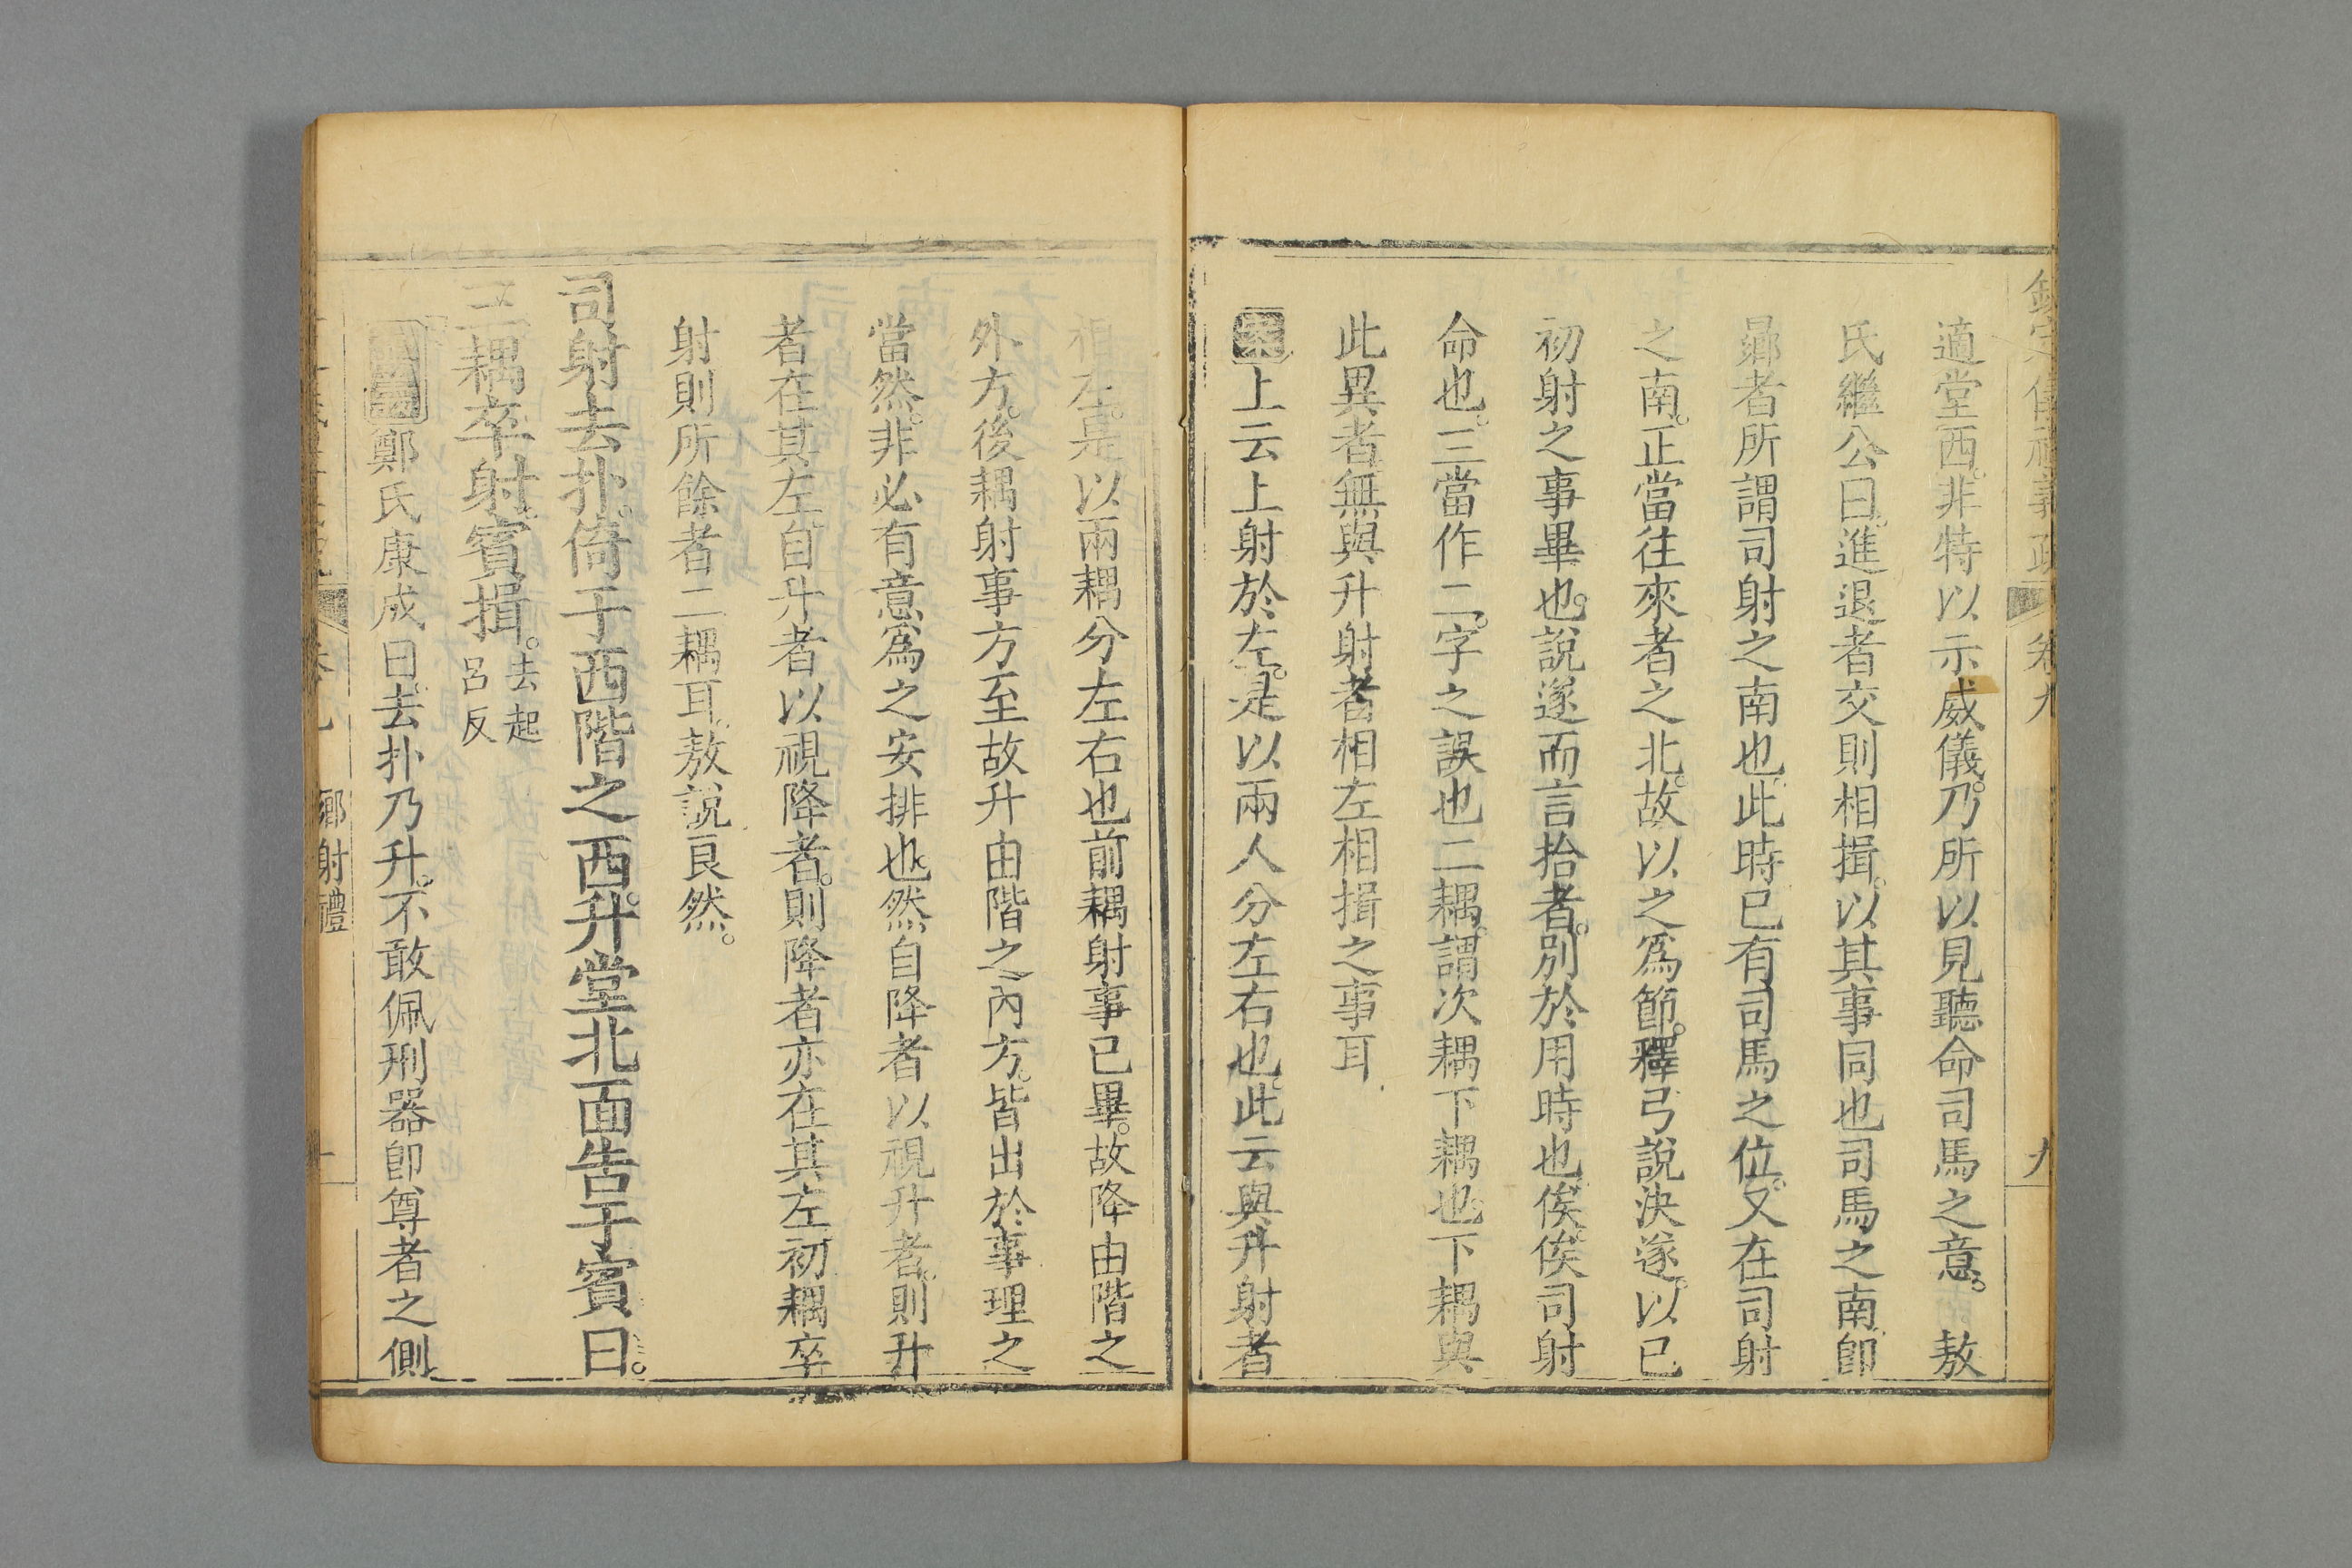 卷九
九
適堂西。非特以示威儀。乃所以見聽命司馬之意。 敖
氏繼公曰。進退者交則相揖。以其事同也司馬之南。卽
曏者所謂司射之南也。此時已有司馬之位。又在司射
之南。正當往來者之北。故以之爲節。釋弓說決遂。以已
初射之事畢也。說遂而言拾者。別於用時也。俟。俟司射
命也。三當作二。字之誤也二耦。謂次耦下耦也。下耦與
此異者。無與升射者相左相揖之事耳。
案上云上射於左。是以兩人分左右也。此云與升射者
相左。是以兩耦分左右也前耦射事已畢。故降由階之
外方。後耦射事方至故升由階之內方。皆出於事理之
當然。非必有意爲之安排也。然自降者以視升者。則升
者在其左。自升者以視降者。則降者亦在其左。初耦卒
射則所餘者二耦耳。敖說良然。
司射去扑。倚于西階之西。升堂北面告于賓曰。
三耦卒射。賓揖。去起
呂反
鄭氏康成曰。去扑乃升。不敢佩刑器卽尊者之側。
鄉射禮